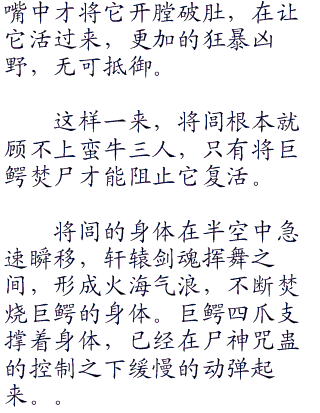 嘴中才将它开膛破肚，在让
它活过来，更加的狂暴凶
野，无可抵御。
这样一来，将闾根本就
顾不上蛮牛三人，只有将巨
鳄焚尸才能阻止它复活。
将闾的身体在半空中急
速瞬移，轩辕剑魂挥舞之
间，形成火海气浪，不断焚
烧巨鳄的身体。巨鳄四爪支
撑着身体，已经在尸神咒蛊
的控制之下缓慢的动弹起
来。。